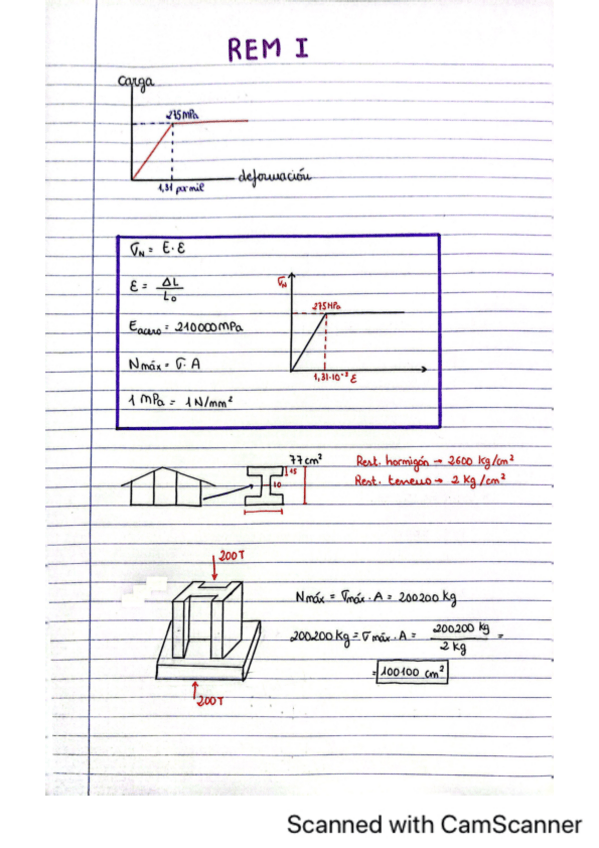 REM I
Carga
275 mPa
deformación
1,31 por mil
σN = E·ε
ε = ΔL / L₀
Eacero = 210000 mPa
Nmáx = σ·A
1 MPa = 1 N/mm²
σN
275 MPa
1,31·10⁻³ ε
77 cm²
15
10
Rest. hormigón → 2600 kg/cm²
Rest. terreno → 2 Kg/cm²
200T
Nmáx = σmáx·A = 200200 kg
200200 kg = σmáx·A = 200200 kg / 2 kg =
= 100100 cm²
200T
Scanned with CamScanner